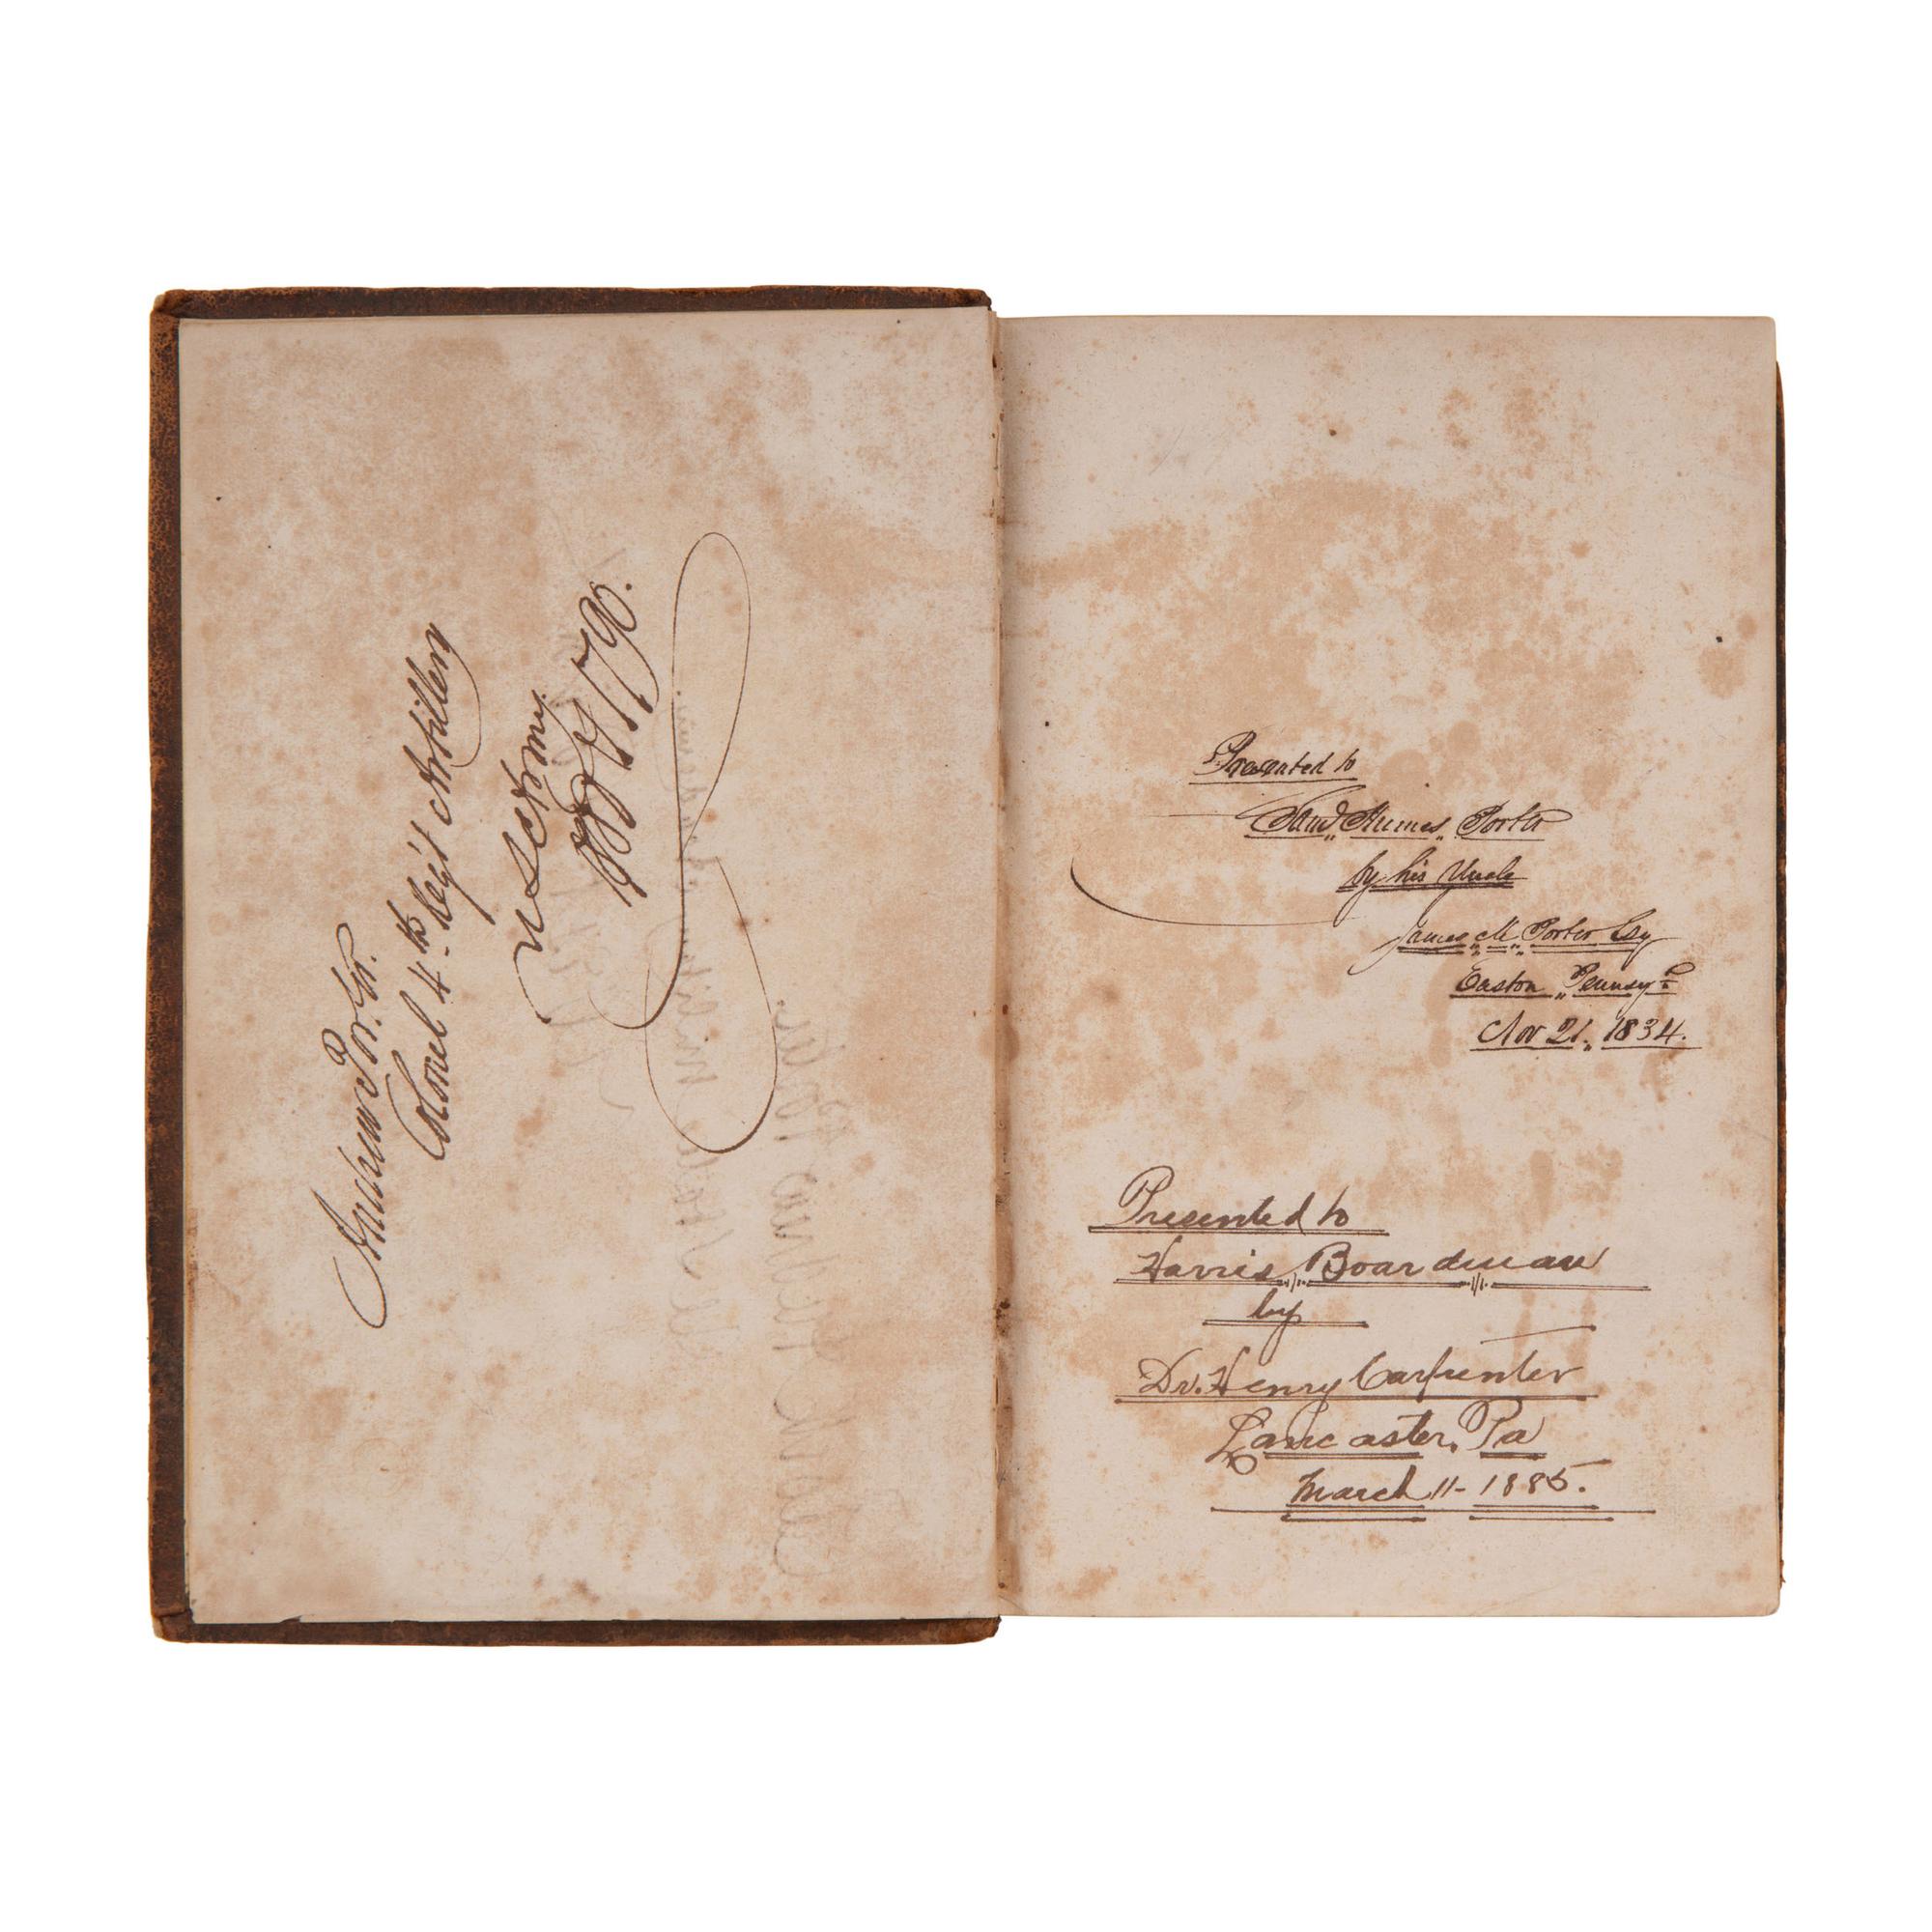 Andrew Porter Jr.
Colonel 4th Reg't Artillery
U S Army
1790.
Presented to
Saml Humes Porter
by his Uncle
James M Porter Esq
Easton Pennsya
Nov 21. 1834.
Presented to
Harris Boardman
by
Dr. Henry Carpenter
Lancaster, Pa
March 11- 1885.